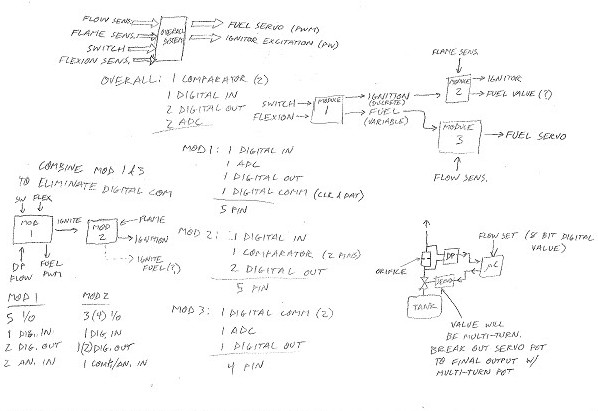 FLOW SENS.
FLAME SENS.
SWITCH
FLEXION SENS.
OVERALL SYSTEM
FUEL SERVO (PWM)
IGNITOR EXCITATION (PW)
OVERALL: 1 COMPARATOR (2)
1 DIGITAL IN
2 DIGITAL OUT
2 ADC
SWITCH
FLEXION
MODULE 1
IGNITION (DISCRETE)
FUEL (VARIABLE)
FLAME SENS.
MODULE 2
IGNITOR
FUEL VALVE (?)
MODULE 3
FUEL SERVO
FLOW SENS.
MOD 1: 1 DIGITAL IN
1 ADC
1 DIGITAL OUT
1 DIGITAL COMM (CLK & DAT)
5 PIN
MOD 2: 1 DIGITAL IN
1 COMPARATOR (2 PINS)
2 DIGITAL OUT
5 PIN
MOD 3: 1 DIGITAL COMM (2)
1 ADC
1 DIGITAL OUT
4 PIN
COMBINE MOD 1 & 3
TO ELIMINATE DIGITAL COM
SW FLEX
MOD 1
IGNITE
MOD 2
FLAME
IGNITION
IGNITE FUEL(?)
DP FLOW
FUEL PWM
MOD 1
5 I/O
1 DIG. IN
2 DIG. OUT
2 AN. IN
MOD 2
3(4) I/O
1 DIG. IN
1(2) DIG. OUT
1 COMP./AN. IN
ORIFICE
DP
SERVO
µC
TANK
FLOW SET (8 BIT DIGITAL VALUE)
VALVE WILL
BE MULTI-TURN.
BREAK OUT SERVO POT
TO FINAL OUTPUT W/
MULTI-TURN POT